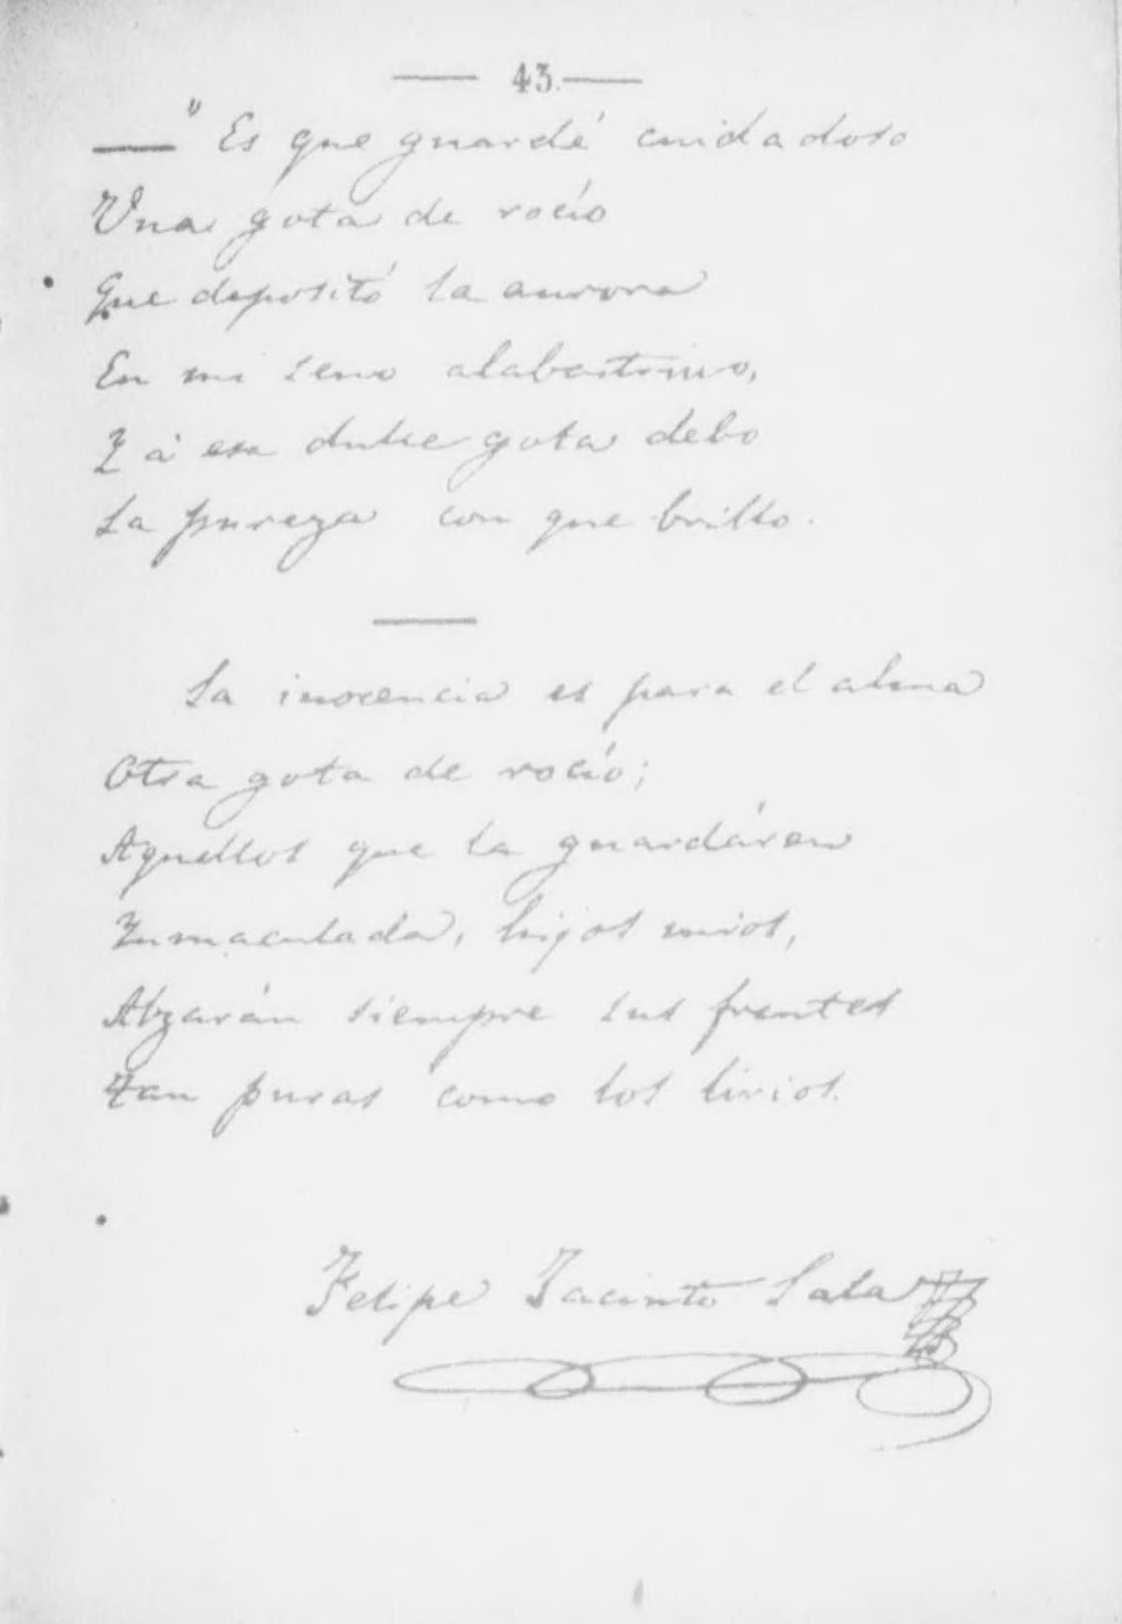 — 43. —
—" Es que guardé cuidadoso
Una gota de rocío
Que depositó la aurora
En mi seno alabastrino,
Y á esa dulce gota debo
La pureza con que brillo.
La inocencia es para el alma
Otra gota de rocío;
Aquellos que la guardáren
Inmaculada, hijos mios,
Alzarán siempre sus frentes
Tan puras como los lirios.
Felipe Jacinto Sala